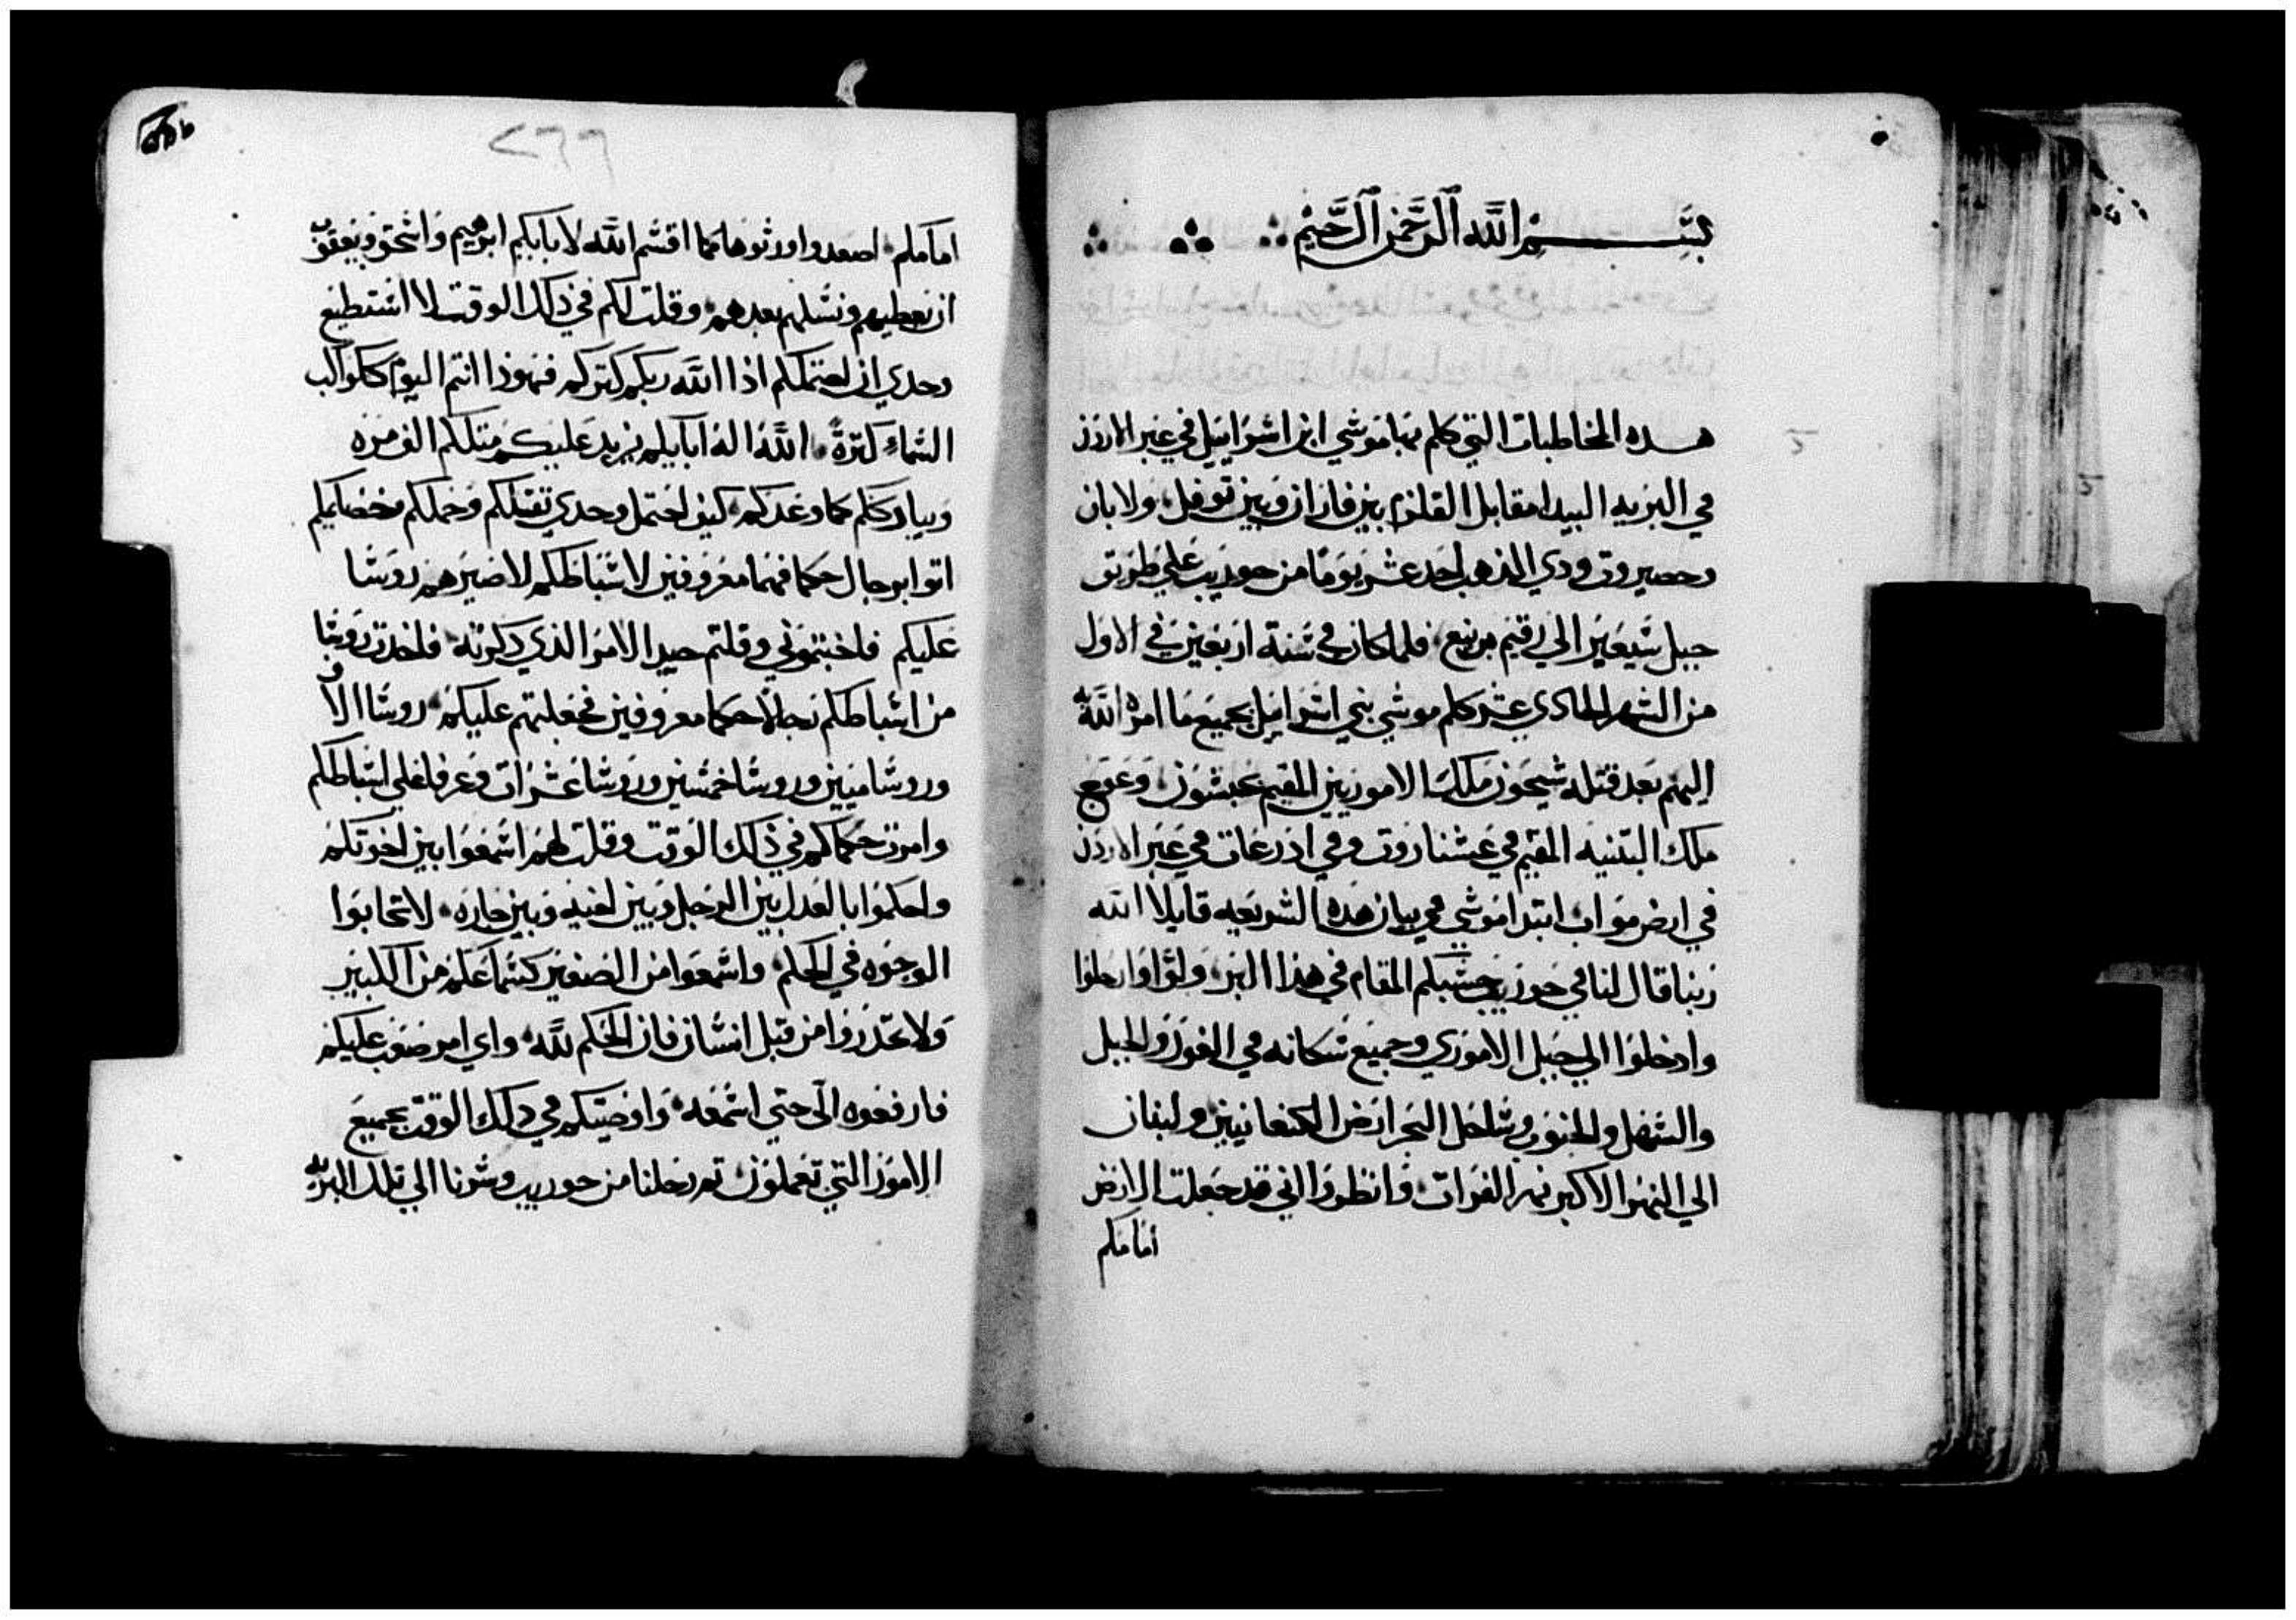 بسم الله الرحمن الرحيم
هذه المخاطبات التي كلم بها موسي ابن اسراييل في عبر الاردن
في البريه البيدا مقابل القلزم بين فاران وبين توفل ولابان
وحصيروت ودي الذهب احد عشر يومًا من حوريب علي طريق
جبل سيعير الي رقيم برنيع فلما كان في سنة اربعين في الاول
من الشهر الحادي عشر كلم موسي بني اسراييل بجميع ما امره الله به
اليهم بعد قتله شيحون ملك الاموريين المقيم بحبشون وعوج
ملك البتنيه المقيم في عشتاروت وفي ادرعات في عبر الاردن
في ارض مواب ابتدا موسي في بيان هذه الشريعه قايلا الله
ربنا قال لنا في حوريب حسبكم المقام في هذا البر ولوا وارحلوا
وادخلوا الي جبل الاموري وجميع سكانه في الغور والجبل
والسهل والجنوب وساحل البحر ارض الكنعانيين ولبنان
الي النهر الاكبر نهر الفرات وانظروا اني قد جعلت الارض
امامكم
٢٦٦
امامكم اصعدوا ورثوها كما اقسم الله لابايكم ابرهيم واسحق ويعقوب
ان نعطيهم ونسلهم بعدهم وقلت لكم في ذلك الوقت لا استطيع
وحدي ان احتملكم اذا الله ربكم كتركم فهوذا انتم اليوم ككواكب
السماء كترةً الله اله ابايكم يزيد عليكم متلكم الف مره
ويبارككم كما وعدكم كيف احتمل وحدي تقتلكم وحملكم وخصايمكم
اتوا برجال حكما فهما معروفين لاسباطكم لاصيرهم روسًا
عليكم فاجبتموني وقلتم جيد الامر الذي ذكرته فاخدت روسًا
من اسباطكم رجالًا حكما معروفين فجعلتهم عليكم روسًا الاف
وروسًا ميين وروسًا خمسين وروسًا عشرات وعرفا علي اسباطكم
وامرت حكامكم في ذلك الوقت وقلت لهم اسمعوا بين اخوتكم
واحكموا بالعدل بين الرجل وبين اخيه وبين جاره لا تحابوا
الوجوه في الحكم واسمعوا من الصغير كسماعكم من الكبير
ولا تحدروا من قبل انسان فان الحكم لله واي امر صعب عليكم
فارفعوه الَي حتي اسمعه واوصيتكم في ذلك الوقت بجميع
الامور التي تعملون تم رحلنا من حوريب وسرنا الي تلك البريه